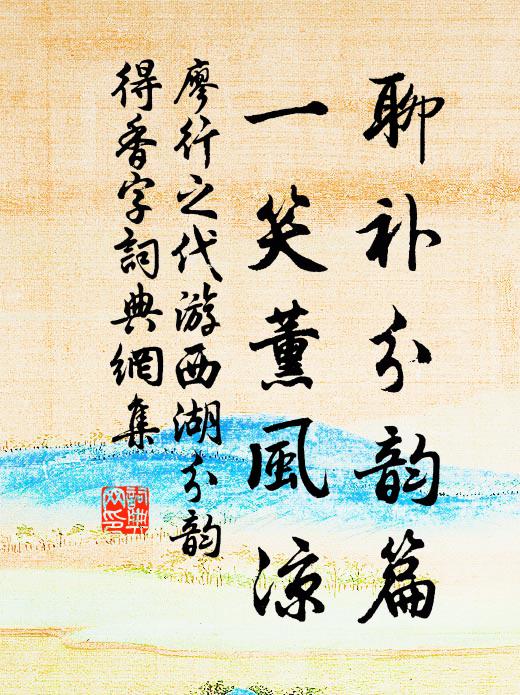 聊补分韵篇
一笑薰風凉
廖行之代游西湖分韵
得香字詞典網集
詞典网印